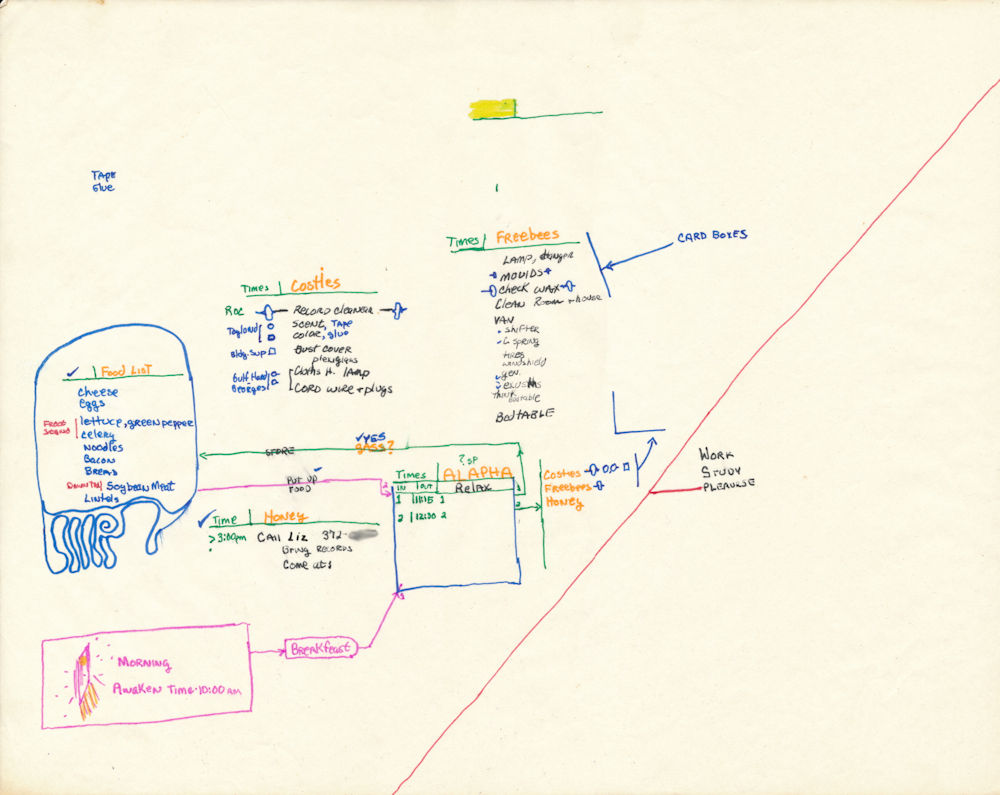 TAPE
Glue
Times | Freebees
LAMP,
MOLDS
Check WAX
Clean Room + house
VAN
shifter
G spring
tires
windshield
THINK
BEdTABLE
CARD BOXES
Times | Costies
Roc
RECORD CLEANER
Taylord
SCENT, TAPE
COLOR, glue
Bldg. Sup
Dust COVER
plexiglass
Gulf Hard
Georges
Cloths H. lAMP
CORD WIRE + plugs
Food List
Cheese
Eggs
lettuce, GREEN PEPPER
Celery
NOODLES
Bacon
BREAS
Soybean Meat
Lintels
YES
STORE
GASS?
PUT UP
FOOD
? SP
Times
ALAPHA
IN OUT
Relax
1 11:15 1
2 12:30 2
2
1
2
3
Costies
Freebees
Honey
WORK
STUDY
PLEAURSE
Time | Honey
>3:00pm CAll Liz 372-
Bring RECORDS
Come at:
MORNING
AWAKEN TIME·10:00 AM
BREAKfeast